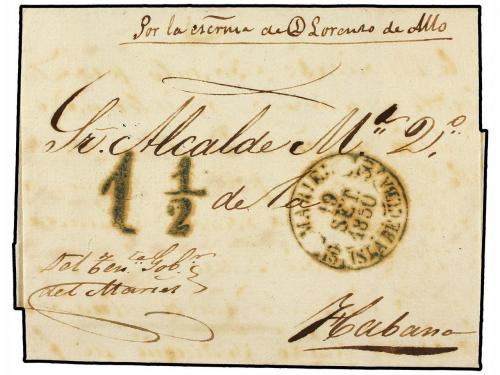 Por la escrnia de D Lorenzo de Allo
Sr. Alcalde Mar 2.º
de la
1 1/2
MARIEL
19
SET
1850
ISLA DE CUBA
Del Tente Gobr
del Mariel
Habana